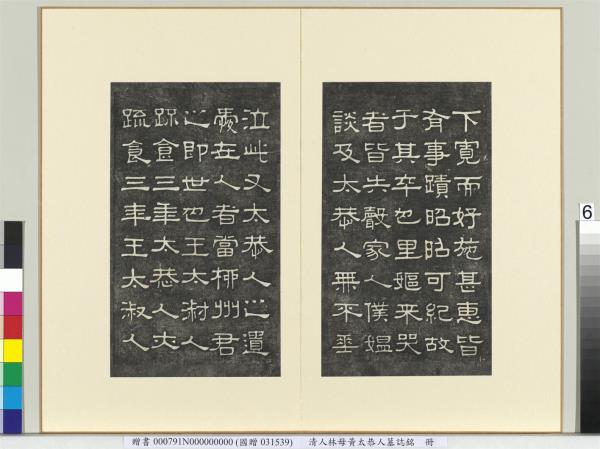 下寬而好施甚惠皆
有事蹟昭昭可紀故
于其卒也里嫗来哭
者皆失聲家人僕媼
談及太恭人無不垂
泣此又太恭人之遺
愛在人者當柳州君
之即世也王太淑人
疎食三年太恭人亦
疏食三年王太淑人
6
贈書 000791N000000000 (國贈 031539) 清人林母黃太恭人墓誌銘 冊